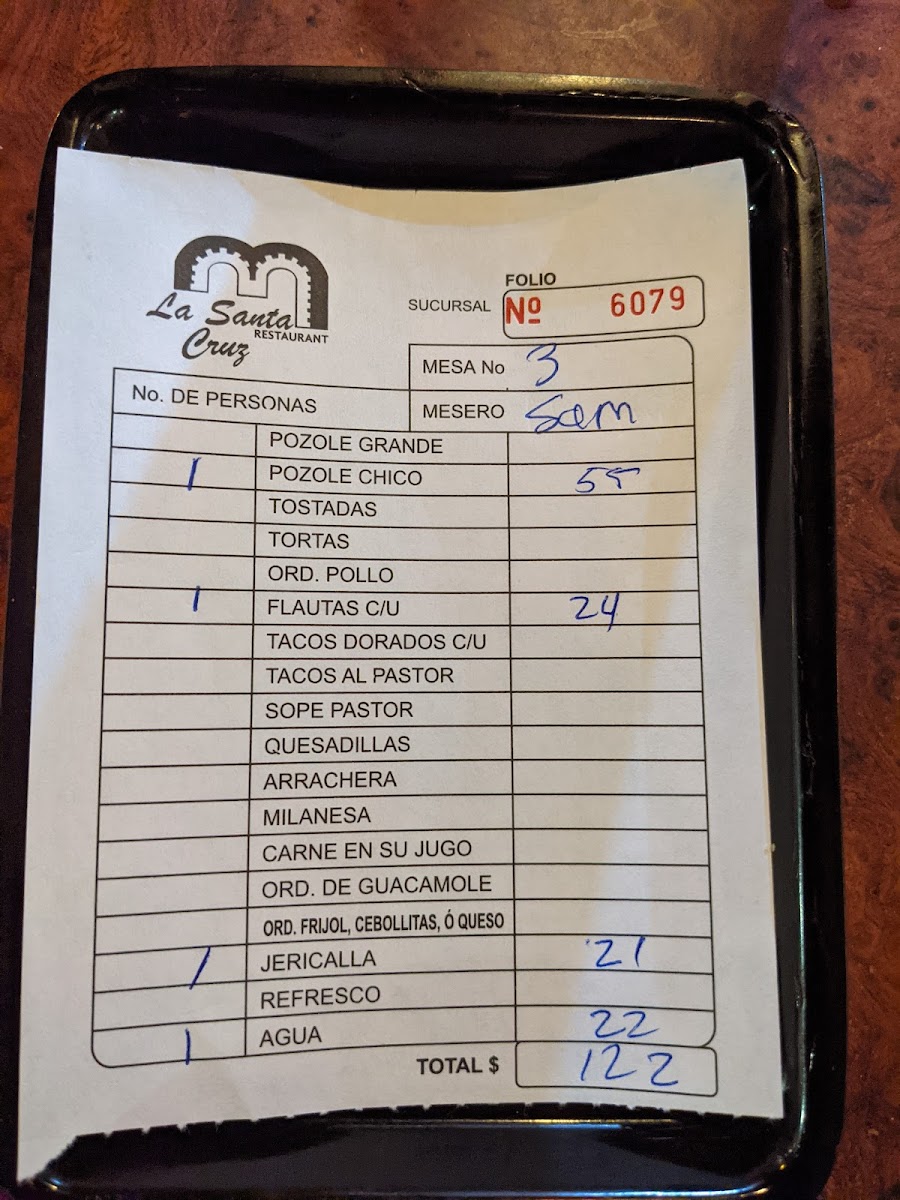 La Santa
Cruz
RESTAURANT
FOLIO
SUCURSAL Nº 6079
MESA No 3
No. DE PERSONAS MESERO Sam
POZOLE GRANDE
1 POZOLE CHICO 55
TOSTADAS
TORTAS
ORD. POLLO
1 FLAUTAS C/U 24
TACOS DORADOS C/U
TACOS AL PASTOR
SOPE PASTOR
QUESADILLAS
ARRACHERA
MILANESA
CARNE EN SU JUGO
ORD. DE GUACAMOLE
ORD. FRIJOL, CEBOLLITAS, Ó QUESO
1 JERICALLA 21
REFRESCO
1 AGUA 22
TOTAL $ 122